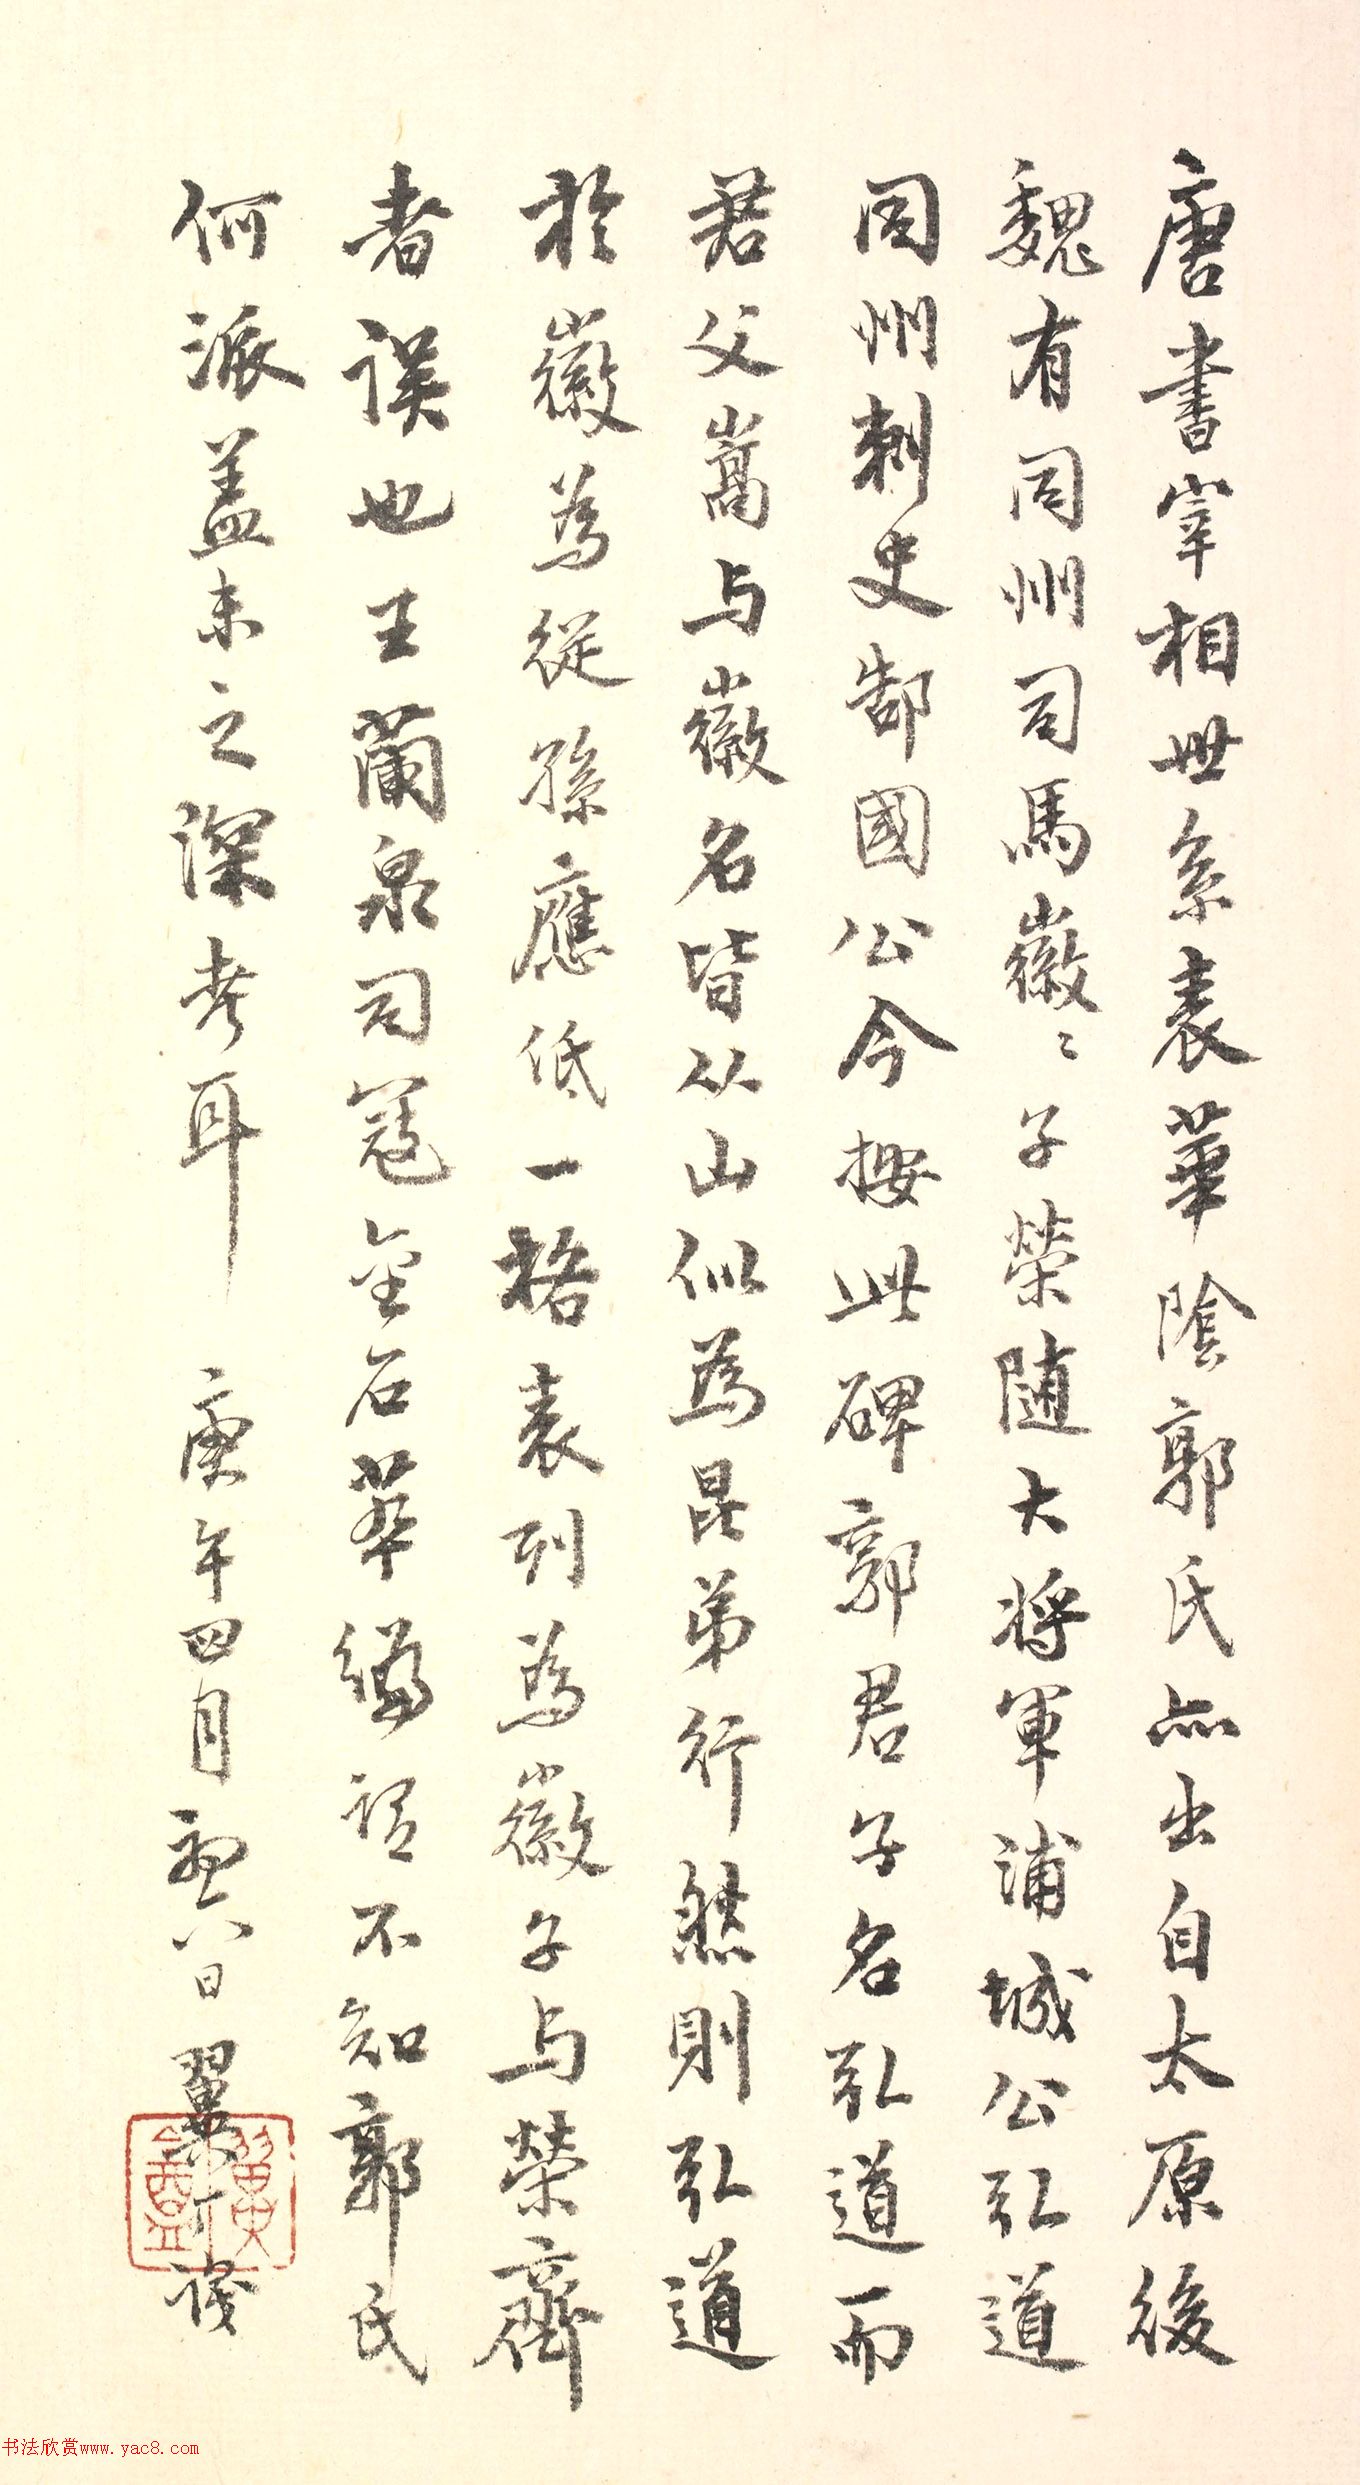 唐書宰相世系表華陰郭氏亦出自太原後
魏有同州司馬徽〻子榮隨大將軍浦城公弘道
同州刺史郜國公今按此碑郭君子名弘道而
君父嵩与徽名皆从山似為昆弟行然則弘道
於徽為從孫應低一格表列為徽子与榮齊
者误也王蘭泉司寇金石萃編謂不知郭氏
何派蓋未之深考耳 庚午四月初八日翼 識
书法欣赏www.yac8.com